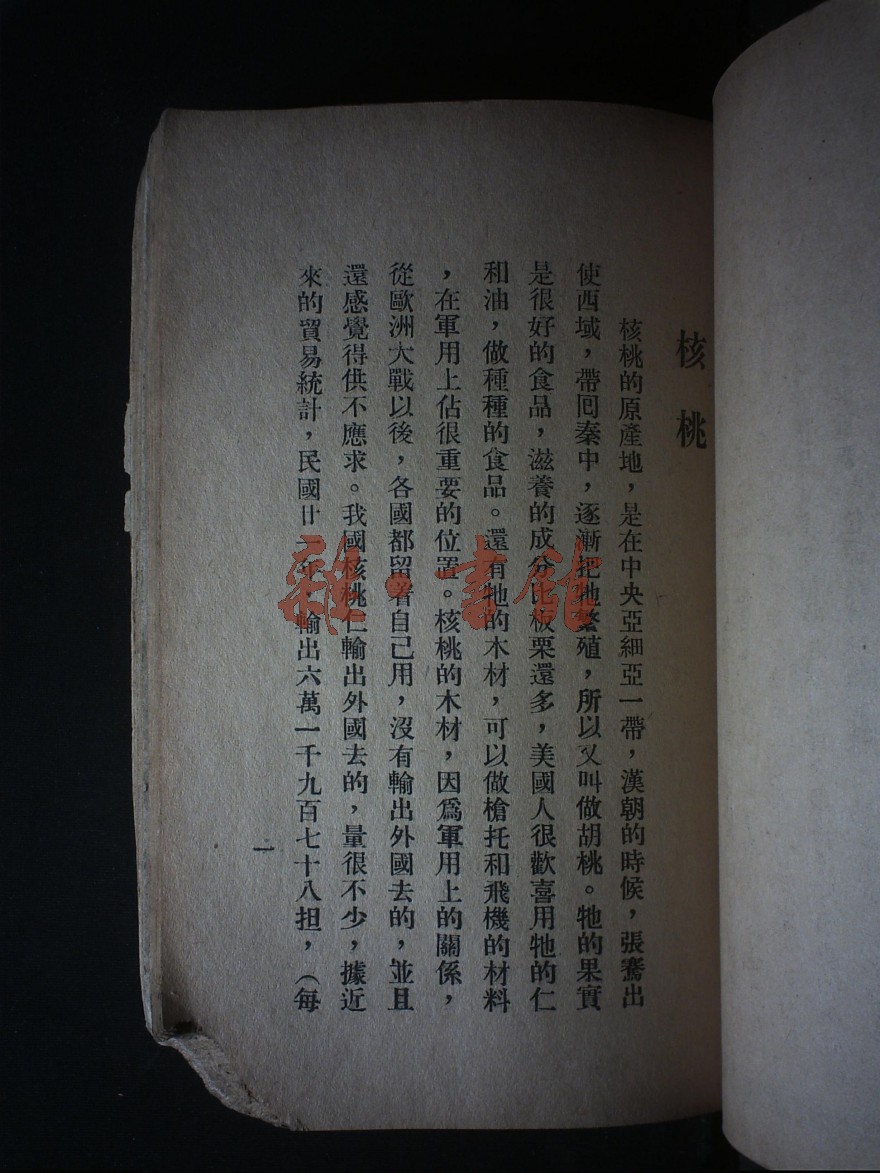 核桃
核桃的原產地，是在中央亞細亞一帶，漢朝的時候，張騫出
使西域，帶囘秦中，逐漸把牠繁殖，所以又叫做胡桃。牠的果實
是很好的食品，滋養的成分比板栗還多，美國人很歡喜用牠的仁
和油，做種種的食品。還有牠的木材，可以做槍托和飛機的材料
，在軍用上佔很重要的位置。核桃的木材，因爲軍用上的關係，
從歐洲大戰以後，各國都留着自己用，沒有輸出外國去的，並且
還感覺得供不應求。我國核桃仁輸出外國去的，量很不少，據近
來的貿易統計，民國廿一年，輸出六萬一千九百七十八担，（每
一
雜·書館